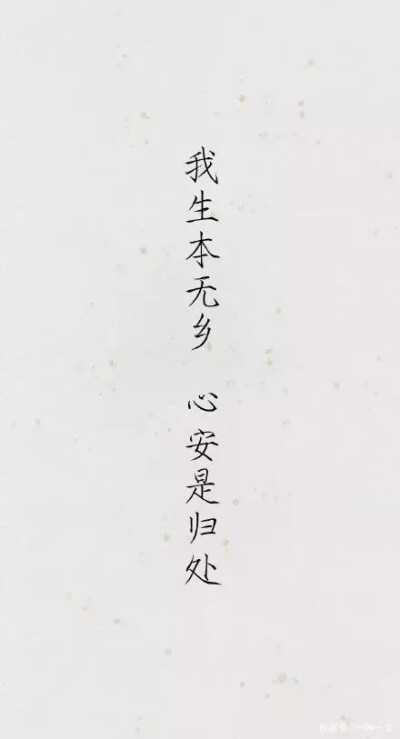 我生本无乡 心安是归处